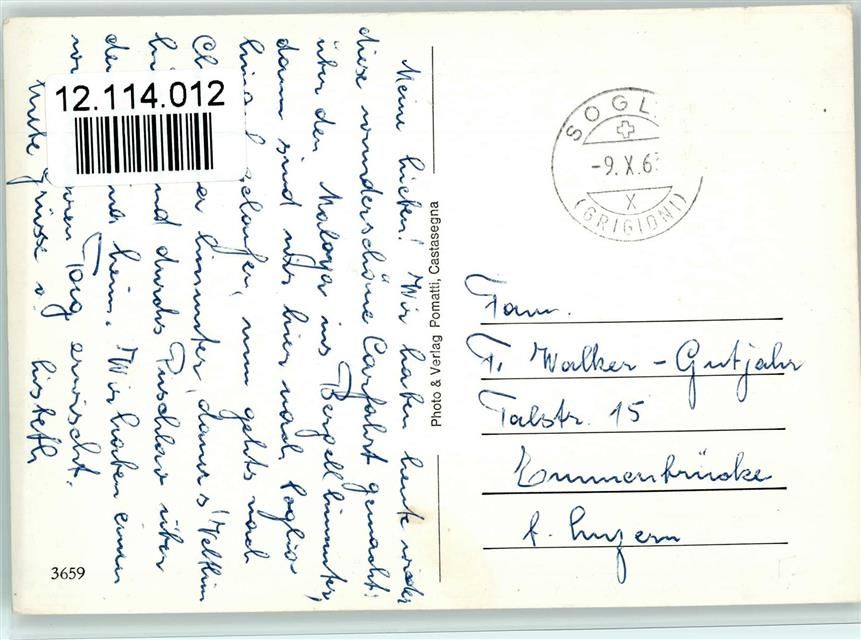 Meine Lieben! Wir haben heute wieder
diese wunderschöne Carfahrt gemacht:
über den Maloja ins Bergell hinunter,
dann sind wir hier nach Soglio
gelaufen, nun gehts nach
hinunter, dann s'Veltlin
und durchs Puschlav über
heim. Wir haben einen
Tag erwischt.
Grüsse v. Lisbeth
12.114.012
3659
Photo & Verlag Pomatti, Castasegna
SOGL
-9.X.6
X
(GRIGIONI)
Fam.
F. Walker-Gutjahr
Talstr. 15
Emmenbrücke
b. Luzern